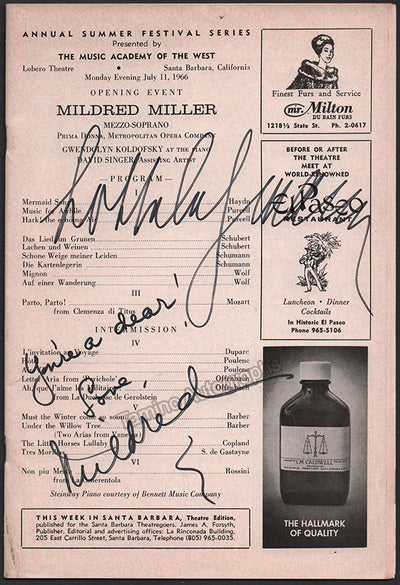 ANNUAL SUMMER FESTIVAL SERIES
Presented by
THE MUSIC ACADEMY OF THE WEST
Lobero Theatre • Santa Barbara, California
Monday Evening July 11, 1966
OPENING EVENT
MILDRED MILLER
MEZZO-SOPRANO
PRIMA DONNA, METROPOLITAN OPERA COMPANY
GWENDOLYN KOLDOFSKY AT THE PIANO
DAVID SINGER ASSISTING ARTIST
—PROGRAM—
I
Mermaid Song Haydn
Music for Purcell
Hark! the echoing Air Purcell
Das Lied im Grunen Schubert
Lachen und Weinen Schubert
Schone Wiege meiner Leiden Schumann
Die Kartenlegerin Schumann
Mignon Wolf
Auf einer Wanderung Wolf
III
Parto, Parto! Mozart
from Clemenza di Titus
INTERMISSION
IV
L'invitation au voyage Duparc
Poulenc
Poulenc
Letter Aria from "Perichole" Offenbach
Ah, que j'aime les militaires Offenbach
from La Duchesse de Gerolstein
Must the Winter come so soon Barber
Under the Willow Tree Barber
(Two Arias from Vanessa)
The Little Horses Lullaby Copland
Tres Mor S. de Gastayne
VI
Non piu Mesta Rossini
from La Cenerentola
Steinway Piano courtesy of Bennett Music Company
You're a dear!
Love,
Mildred
THIS WEEK IN SANTA BARBARA, Theatre Edition,
published for the Santa Barbara Theatregoers. James A. Forsyth,
Publisher, Editorial and advertising offices: La Rinconada Building,
205 East Carrillo Street, Santa Barbara, Telephone (805) 965-0035.
Finest Furs and Service
mr. Milton
DU BAIN FURS
1218½ State St. Ph. 2-0617
BEFORE OR AFTER
THE THEATRE
MEET AT
WORLD-RENOWNED
El Paseo
RESTAURANT
Luncheon • Dinner
Cocktails
In Historic El Paseo
Phone 965-5106
L.M. CALDWELL
THE HALLMARK
OF QUALITY